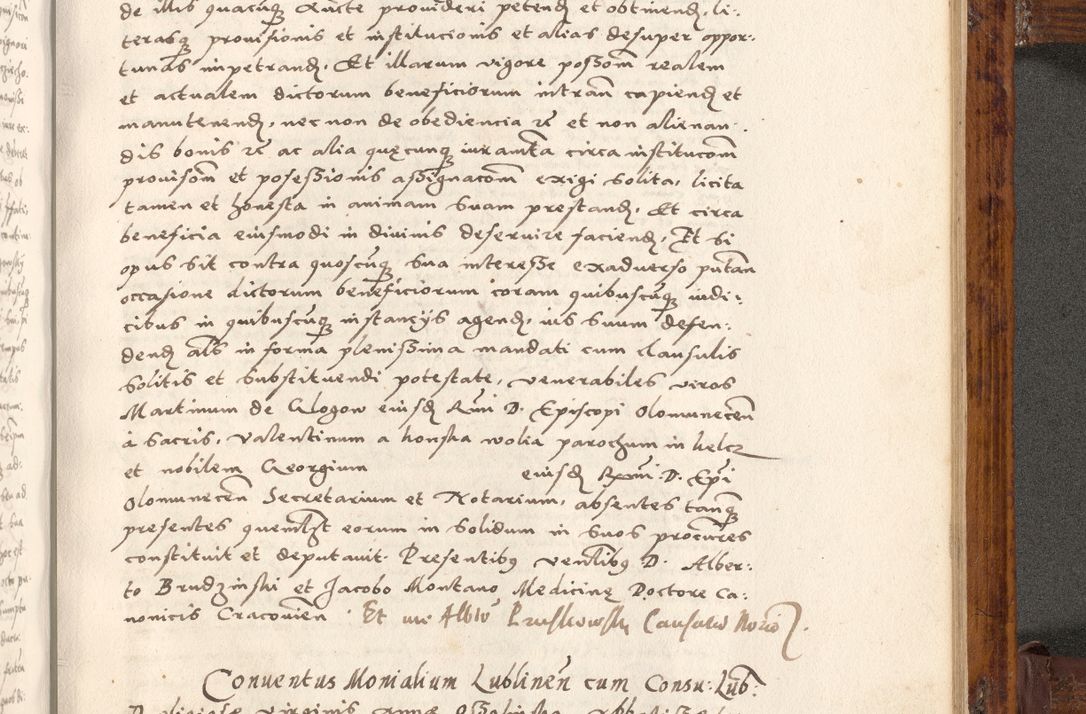 de illis quacuque dicte provideri petend et obtinend, li:
terasque provisionis et institucionis et alias desuper oppor:
tunas impetrand, Et illarum vigore possom realem
et actualem dictorum beneficiorum intran capiend et
manutenend, nec non de obediencia rc et non alienan:
dis bonis rc ac alia quęcunque iuramta circa institucom
provisom et posessionis assignacom exigi solita, licita
tamen et honesta in animam suam prestand, Et circa
beneficia eiusmodi in divinis deservire faciend, Et si
opus sit contra quoscuque sua interesse exadverso putan
occasione dictorum beneficiorum coram quibuscuque iudi:
cibus in quibuscuque instancijs agend, ius suum defen:
dend als in forma plenissima mandati cum clausulis
solitis et substituendi potestate, venerabiles viros
Martinum de Glogow eiusd Rmi D. Episcopi Olomunecen
à sacris, Valentinum a konska wolia parochum in kelcz
et nobilem Georgium eiusd Rmi D. Epi
Olomunecen Secretarium et Notarium, absentes tanque
presentes quemlst eorum in solidum in suos procures
constituit et deputavit. Presentibus ventibus D. Alber:
to Brudzinski et Jacobo Montano Medicinę Doctore Ca:
nonicis Cracovien Et me Albto Pruskowsky Causaru Norio.
Conventus Monialium Lublinen cum Consu: Lub:
virginis